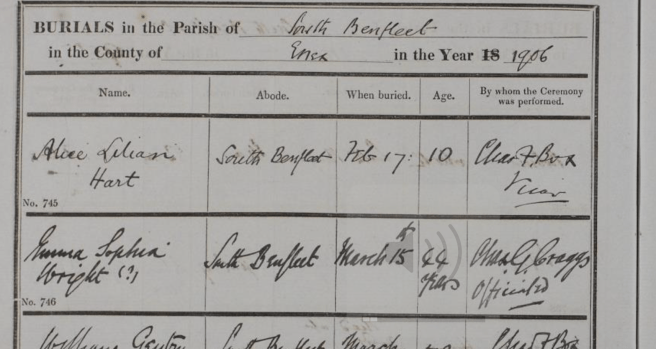 BURIALS in the Parish of South Benfleet
in the County of Essex in the Year 18 1906
Name. Abode. When buried. Age. By whom the Ceremony was performed.
Alice Lilian South Benfleet Feb 17: 10 Chas F. Box
Hart Vicar
No. 745
Emma Sophia South Benfleet March 15th 44 Chas. G. Craggs
Wright (?) years Officiated
No. 746
William South Benfleet March Chas F Box